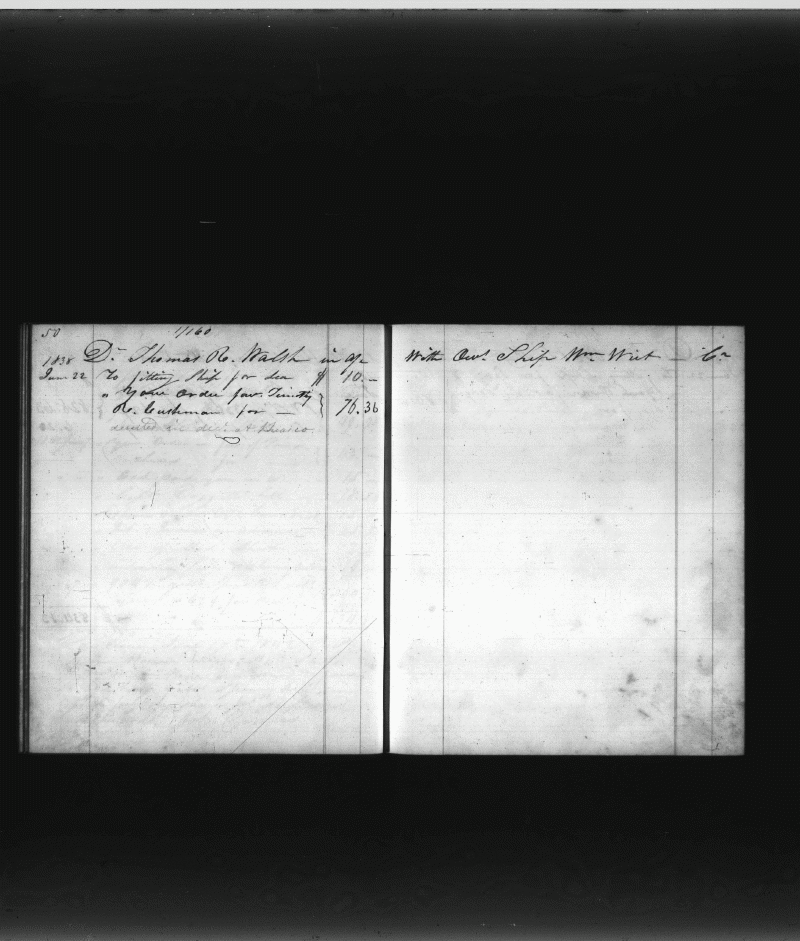 50 1/160
Dr Thomas R. Walsh in a/c With Ow.s Ship Wm Wirt — Cr
1838
June 22 To fitting Ship for sea $ 10.—
" Your order fav. Timothy
R. Cushman for — } 76.36